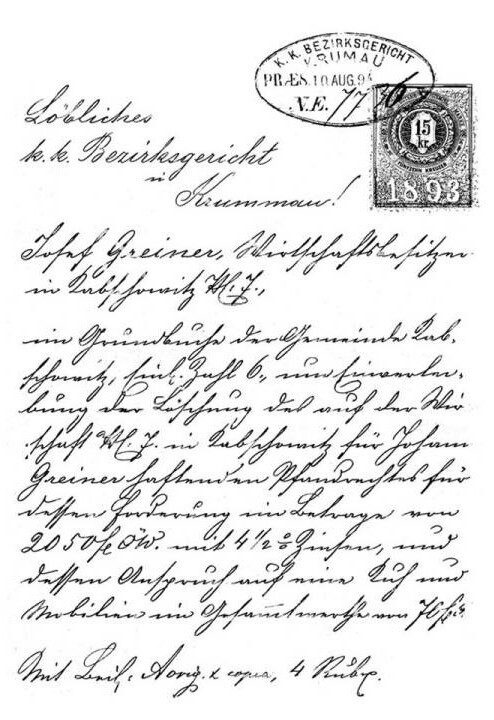 K.K. BEZIRKSGERICHT
KRUMAU
PRÆS. 10 AUG. 94
N.E. 7736
15
kr
1893
Löbliches
k. k. Bezirksgericht
in
Krummau!
Josef Greiner, Wirtschaftsbesitzer
in Kabschowitz N. 7.,
im Grundbuche der Gemeinde Kab-
schowitz, Einl. Zahl 6., um Einverlei-
bung der Löschung des auf der Wir
schaft N. 7. in Kabschowitz für Johann
Greiner haftenden Pfandrechtes für
dessen Forderung im Betrage von
2050 f öW. mit 4 1/2 % Zinsen, und
dessen Anspruch auf eine Kuh und
Mobilien im Gesammtwerthe von 70 f
Mit Beil: & copia, 4 Rubr.